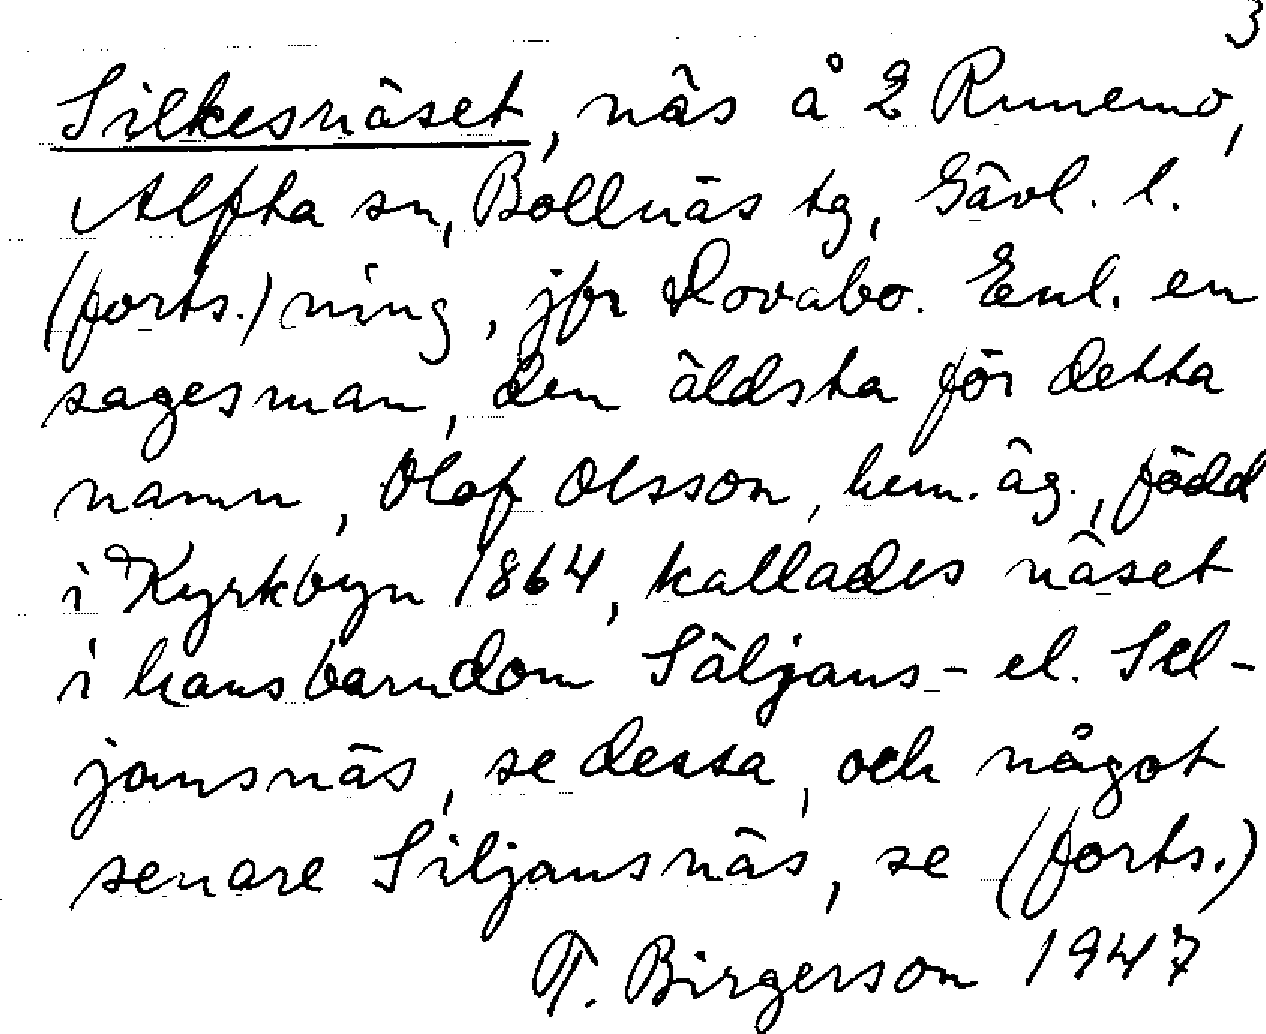 3
Silkesnäset, näs å 2 Runemo,
Alfta sn, Bollnäs tg, Gävl. l.
(forts.) ning, jfr Rovabo. Enl. en
sagesman, den äldsta för detta
namn, Olof Olsson, hem.äg., född
i Kyrkbyn 1864, kallades näset
i hans barndom Säljans- el. Sel-
jansnäs, se dessa, och något
senare Siljansnäs, se (forts.)
T. Birgerson 1947